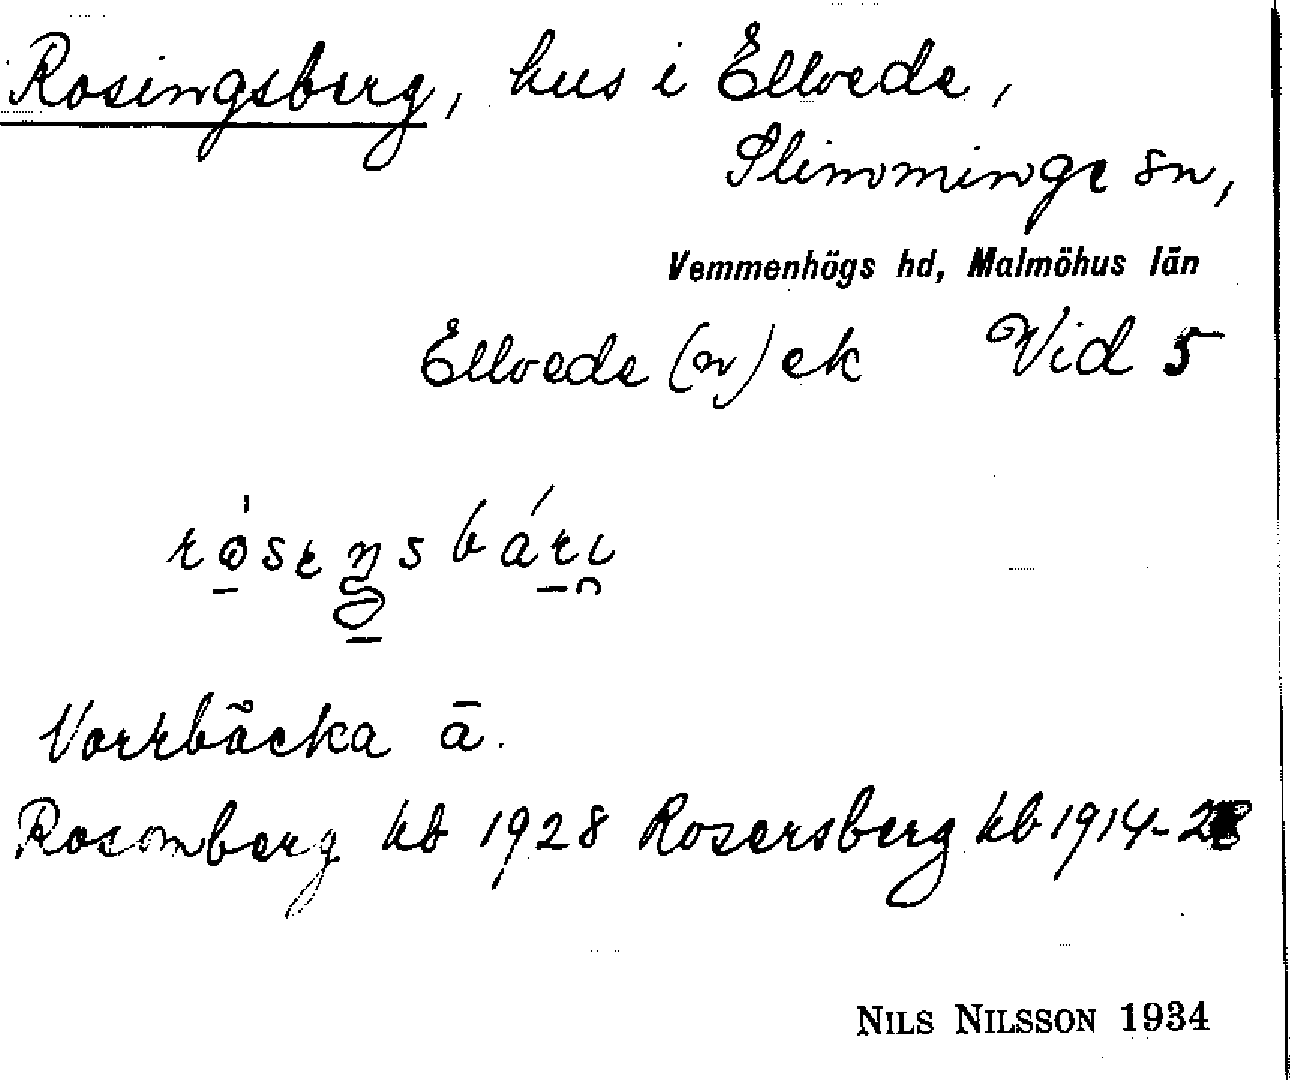 Rosingsberg, hus i Ellvede,
Slimminge sn,
Vemmenhögs hd, Malmöhus län
Ellvede (n) ek Vid 5
Vorrbäcka ä.
Rosomberg kb 1928 Rosersberg kb 1914-28
NILS NILSSON 1934